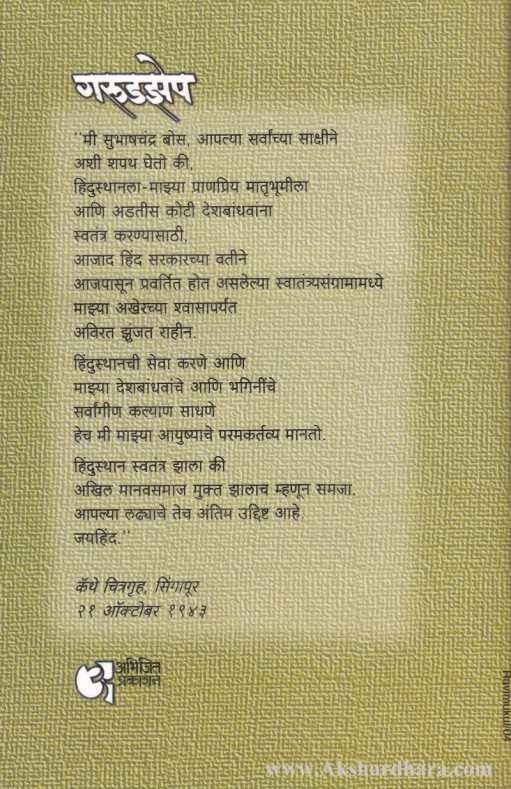 गरुडझेप
"मी सुभाषचंद्र बोस, आपल्या सर्वांच्या साक्षीने
अशी शपथ घेतो की,
हिंदुस्थानला-माझ्या प्राणप्रिय मातृभूमीला
आणि अडतीस कोटी देशबांधवांना
स्वतंत्र करण्यासाठी,
आजाद हिंद सरकारच्या वतीने
आजपासून प्रवर्तित होत असलेल्या स्वातंत्र्यसंग्रामामध्ये
माझ्या अखेरच्या श्वासापर्यंत
अविरत झुंजत राहीन.
हिंदुस्थानची सेवा करणे आणि
माझ्या देशबांधवांचे आणि भगिनींचे
सर्वांगीण कल्याण साधणे
हेच मी माझ्या आयुष्याचे परमकर्तव्य मानतो.
हिंदुस्थान स्वतंत्र झाला की
अखिल मानवसमाज मुक्त झालाच म्हणून समजा.
आपल्या लढ्याचे तेच अंतिम उद्दिष्ट आहे.
जयहिंद."
कॅथे चित्रगृह, सिंगापूर
२१ ऑक्टोबर १९४३
अभिजित
प्रकाशन
www.Akshardhara.com